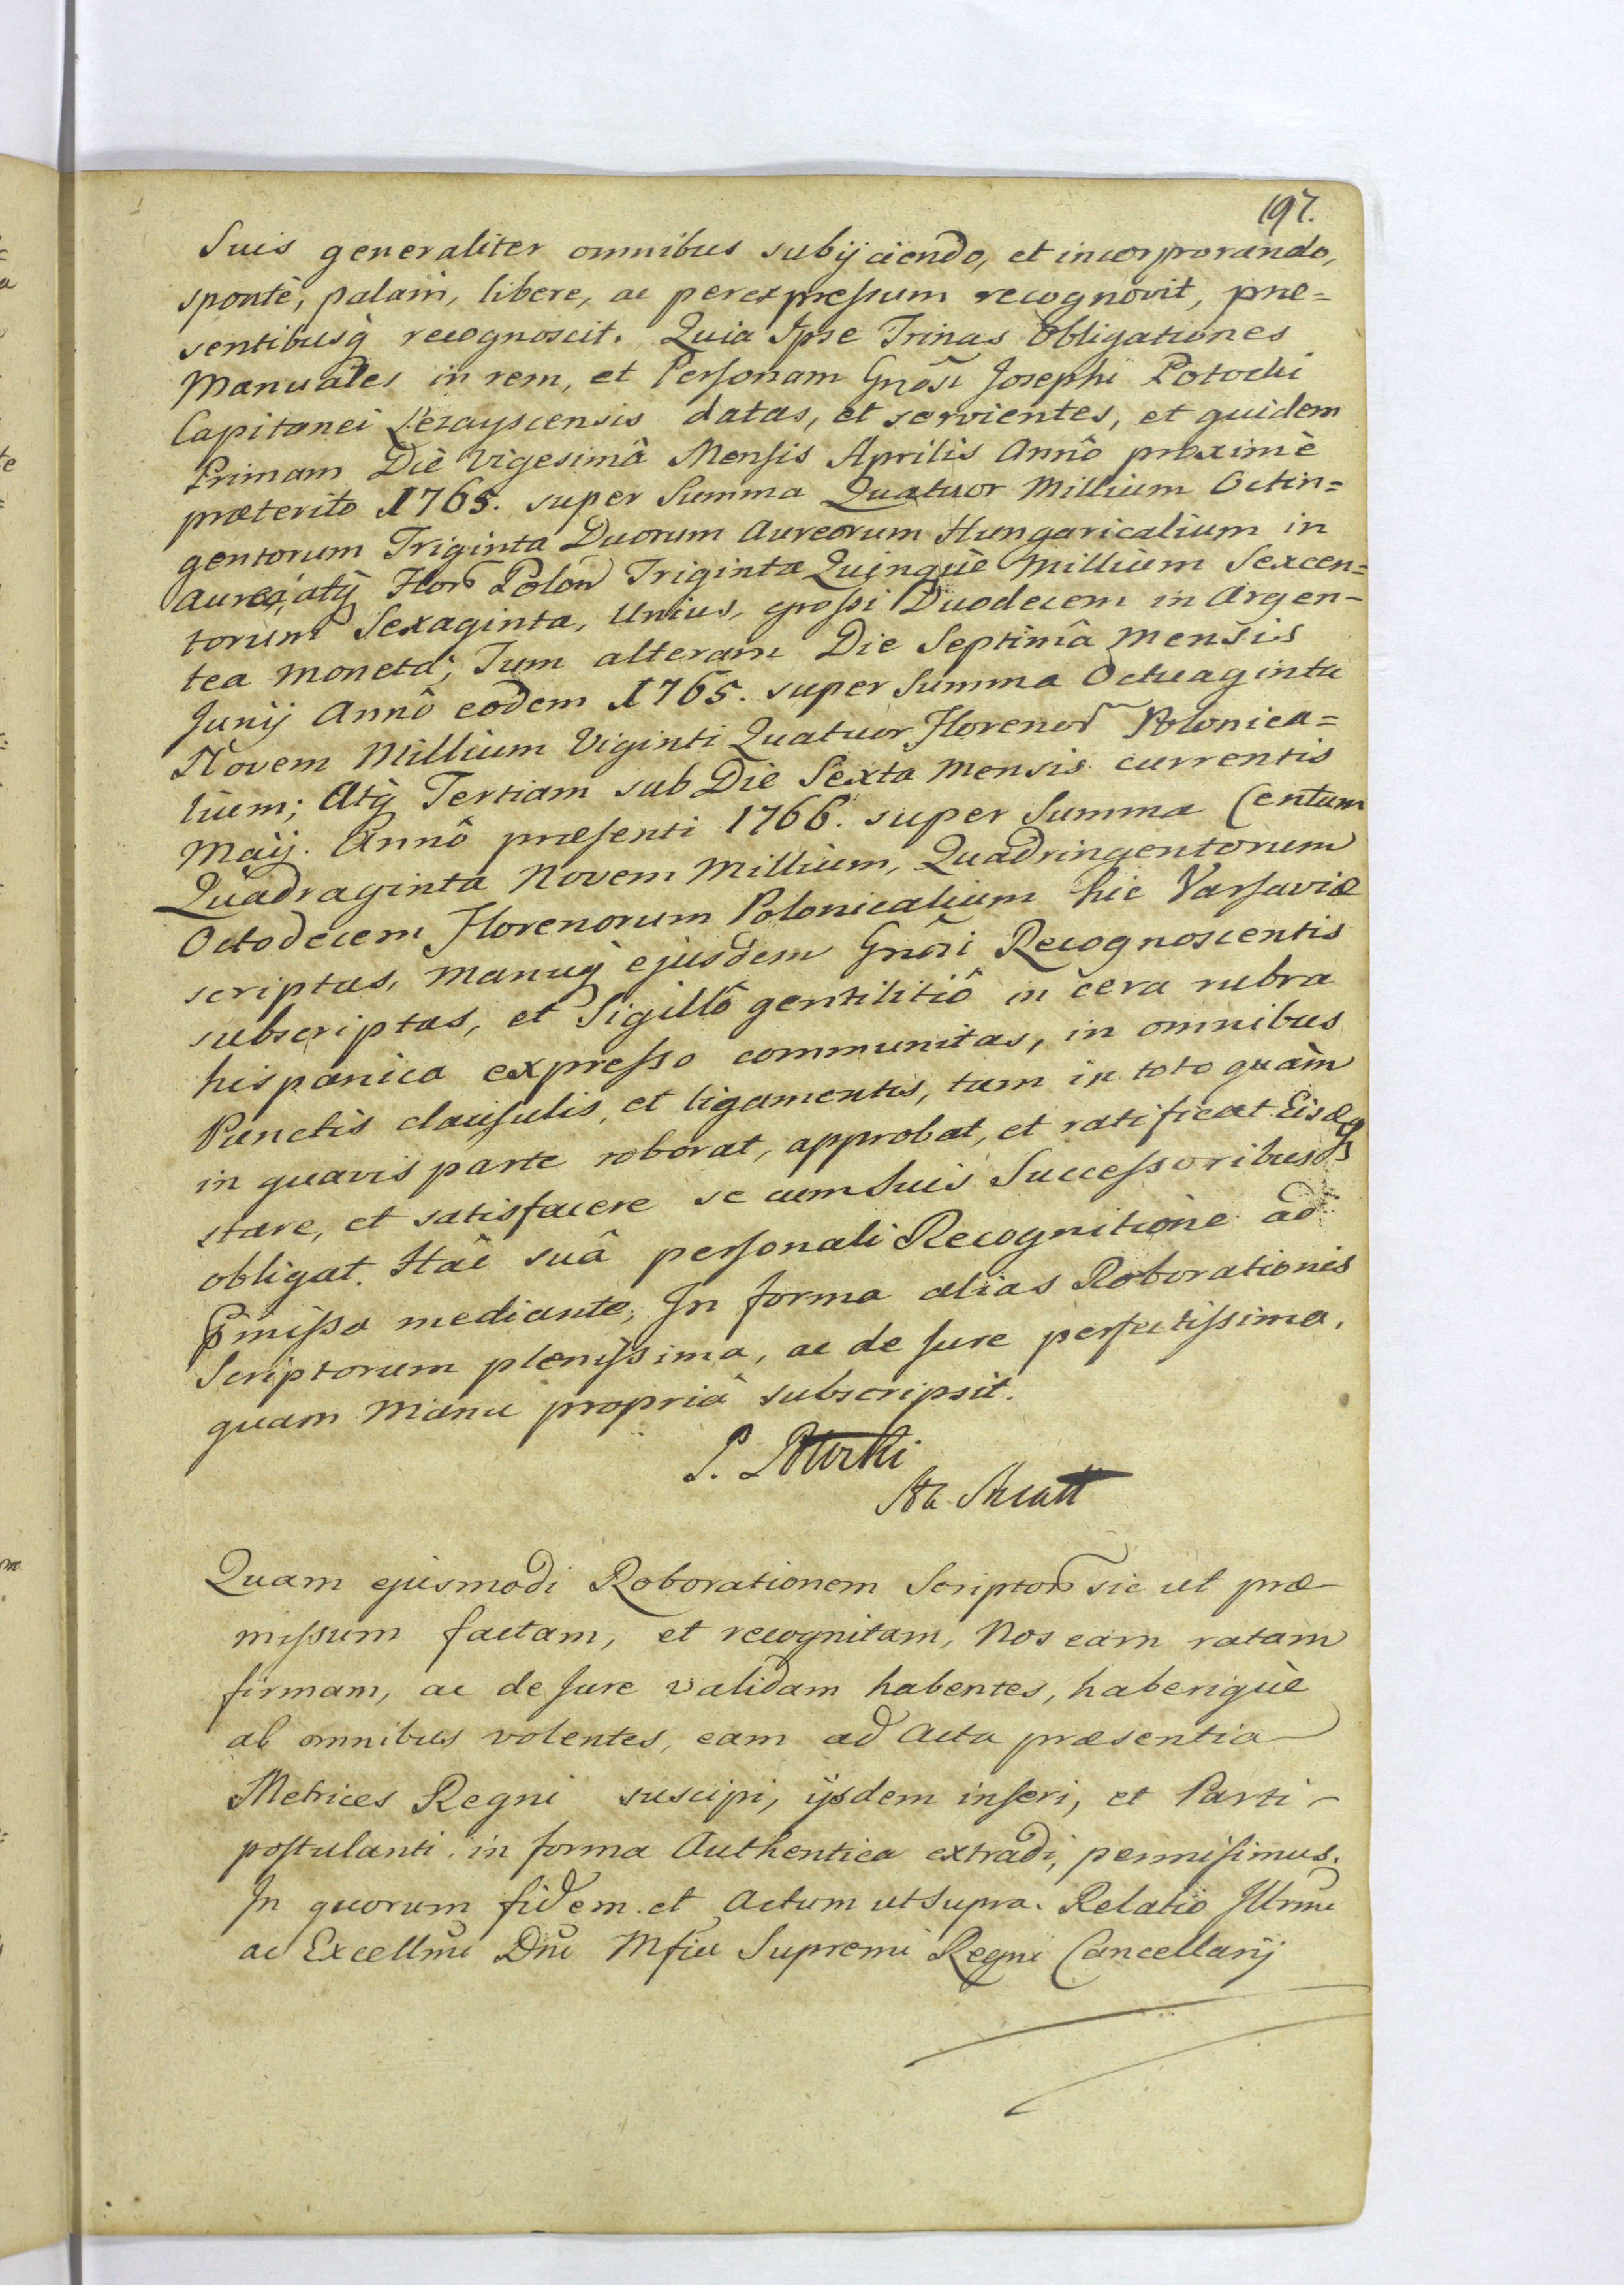 197.
Suis generaliter omnibus subijciendo, et incorporando,
spontè, palam, libere, ac perexpressum recognovit, præ=
sentibusq recognoscit. Quia Ipse Trinas Obligationes
Manuales in rem, et Personam Gnosi Josephi Potocki
Capitanei Leżayscensis datas, et servientes, et quidem
Primam Diè Vigesimâ Mensis Aprilis Annô proximè
præterito 1765. super Summa Quatuor Millium Octin=
gentorum Triginta Duorum Aureorum Hungaricalium in
Aureo, atq Flor Polon Triginta Quinquè Millium Sexcen=
torum Sexaginta, Unius, grossi Duodecem in Argen=
tea Moneta; Tum alteram Die Septimâ Mensis
Junij Annô eodem 1765. super Summa Octuaginta
Novem Millium Viginti Quatuor Florenor Polonica=
lium; Atq Tertiam sub Die Sexta Mensis currentis
Maij. Annô præsenti 1766. super Summa Centum
Quadraginta Novem Millium, Quadringentorum
Octodecem Florenorum Polonicalium hic Varsaviæ
scriptas, Manuq ejusdem Gnosi Recognoscentis
subscriptas, et Sigillô gentilitiô in cera rubra
hispanica expresso communitas, in omnibus
Punctis clausulis, et ligamentis, tam in toto quàm
in quavis parte roborat, approbat, et ratificat Eisdq
stare, et satisfacere se cum Suis Successoribus
obligat. Hâc suâ personali Recognitione ad
Pmissa mediante; In forma alias Roborationis
Scriptorum plenissima, ac de Jure perfectissima,
quam Manu propriâ subscripsit.
P. Potocki
Quam ejusmodi Roborationem Scriptor sic ut præ-
missum factam, et recognitam, Nos eam ratam
firmam, ac de Jure validam habentes, haberiquè
ab omnibus volentes, eam ad Acta præsentia
Metrices Regni suscipi, ijsdem inseri, et Parti -
postulanti in forma Authentica extradi, permisimus.
In quorum fidem et Actum ut Supra. Relatio Illrmi
ac Excellmi Dni Mfici Supremi Regni Cancellarij